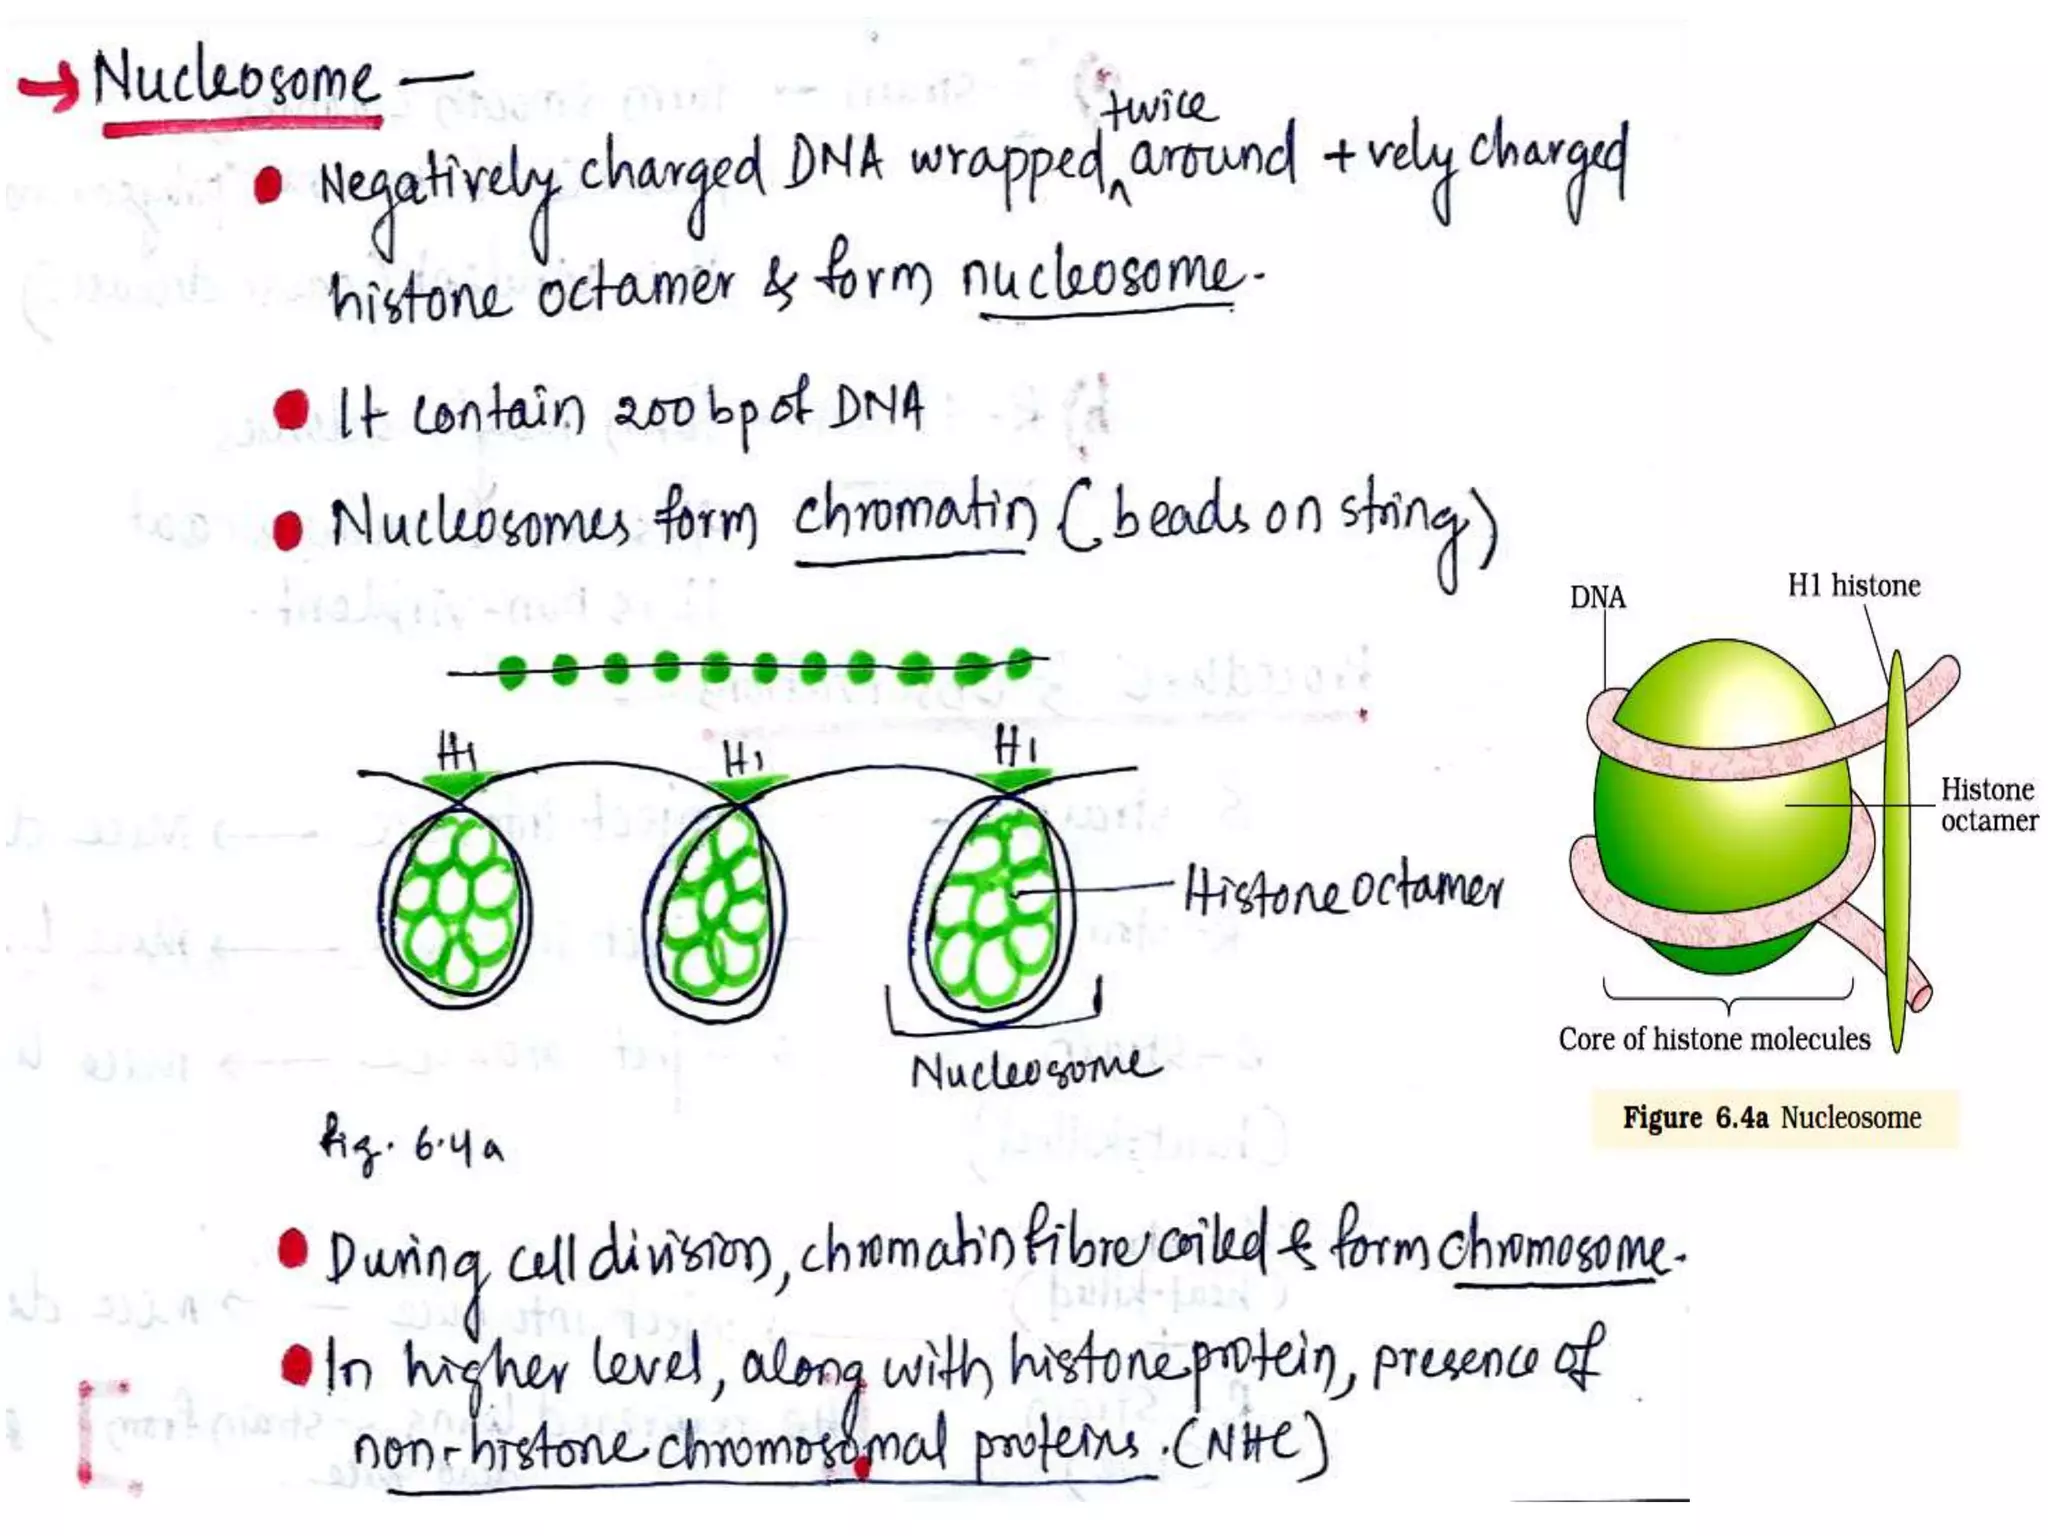 → Nucleosome —
• Negatively charged DNA wrapped twice around +vely charged
histone octamer & form nucleosome.
• It contain 200 bp of DNA
• Nucleosomes form chromatin (beads on string)
H1 H1 H1
Histone octamer
Nucleosome
fig. 6.4a
DNA
H1 histone
Histone
octamer
Core of histone molecules
Figure 6.4a Nucleosome
• During cell division, chromatin fibre coiled & form chromosome.
• In higher level, along with histone protein, presence of
non-histone chromosomal proteins. (NHC)